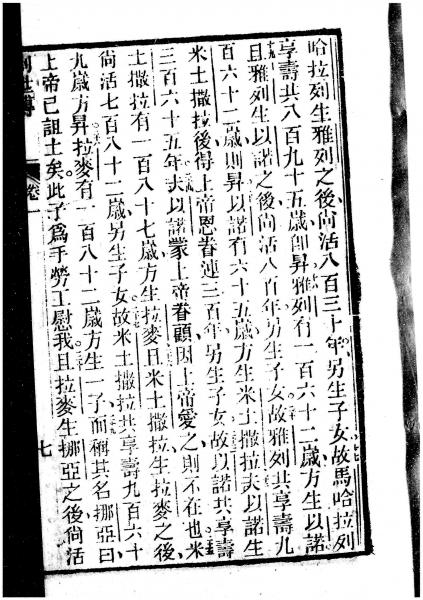 哈拉列生雅列之後尚活八百三十年另生子女故馬哈拉列
享壽共八百九十五歲卽昇雅列有一百六十二歲方生以諾
且雅列生以諾之後尚活八百年另生子女故雅列共享壽九
百六十二歲則昇以諾有六十五歲方生米土撒拉夫以諾生
米土撒拉後得上帝恩眷連三百年另生子女故以諾共享壽
三百六十五年夫以諾蒙上帝眷顧因上帝愛之則不在也米
土撒拉有一百八十七歲方生拉麥且米土撒拉生拉麥之後
尚活七百八十二歲另生子女故米土撒拉共享壽九百六十
九歲方昇拉麥有一百八十二歲方生一子而稱其名挪亞曰
上帝已詛土矣此子爲手勞工慰我且拉麥生挪亞之後尚活
卷一
七